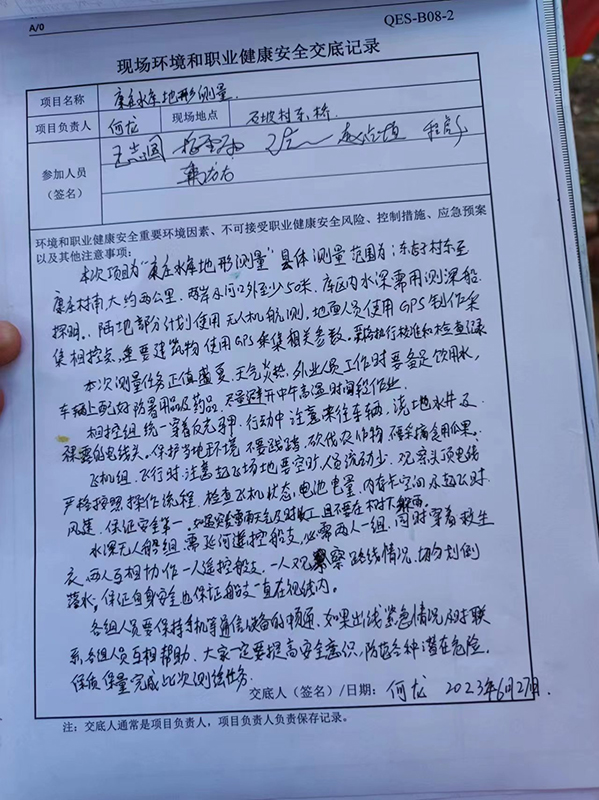 A/0
QES-B08-2
现场环境和职业健康安全交底记录
项目名称 康庄水库地形测量
项目负责人 何龙 现场地点 石坡村东桥
参加人员
（签名）
王志国
环境和职业健康安全重要环境因素、不可接受职业健康安全风险、控制措施、应急预案
以及其他注意事项：
本次项目为“康庄水库地形测量”具体测量范围为：东 村东至
康庄村南大约两公里，两岸及河口外至少50米，库区内水深需用测深船
探明。陆地部分计划使用无人机航测，地面人员使用GPS制作采
集相控点，重要建筑物使用GPS采集相关参数。严格执行校准和检查记录
本次测量任务正值盛夏，天气炎热，外业人员工作时要备足饮用水，
车辆上配好防暑用品及药品，尽量避开中午高温时间段作业
相控组统一穿着反光马甲，行动中注意来往车辆，该地水井及
裸露的电线头。保护当地环境不要践踏、砍伐农作物 采摘食用瓜果。
飞机组，飞行时，注意起飞场地要空旷，人员流动少，观察头顶电线
严格按照操作流程，检查飞机状态，电池电量，内存卡空间及起飞时
风速，保证安全第一。如遇突发雷雨天气及时收工且不要在树下躲雨。
水深无人船组，需延河遥控船支，必需两人一组，同时穿着救生
衣，两人互相协作一人遥控船支，一人观察路线情况，切勿划倒
落水，保证自身安全也保证船支一直在视线内。
各组人员要保持手机等通信设备的畅通，如果出线紧急情况及时联
系，各组人员互相帮助，大家一定要提高安全意识，防范各种潜在危险。
保质保量完成此次测绘任务
交底人（签名）/日期： 何龙 2023年6月27日.
注：交底人通常是项目负责人，项目负责人负责保存记录。